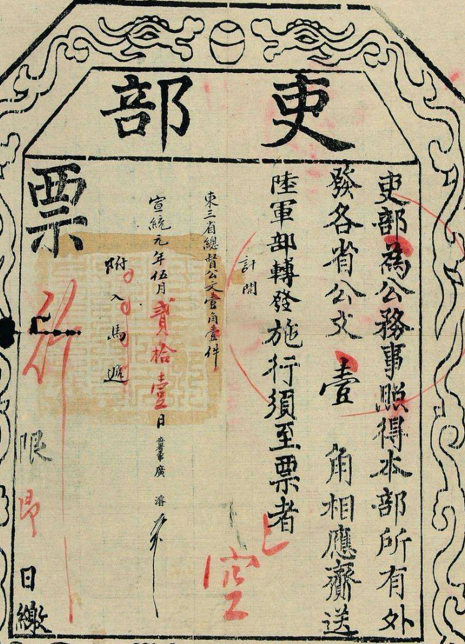 吏部
吏部為公務事照得本部所有外
發各省公文壹角相應齎送
陸軍部轉發施行須至票者
計開
東三省總督公文壹角壹件
宣統元年伍月貳拾壹日
附入馬遞
票
限即日繳